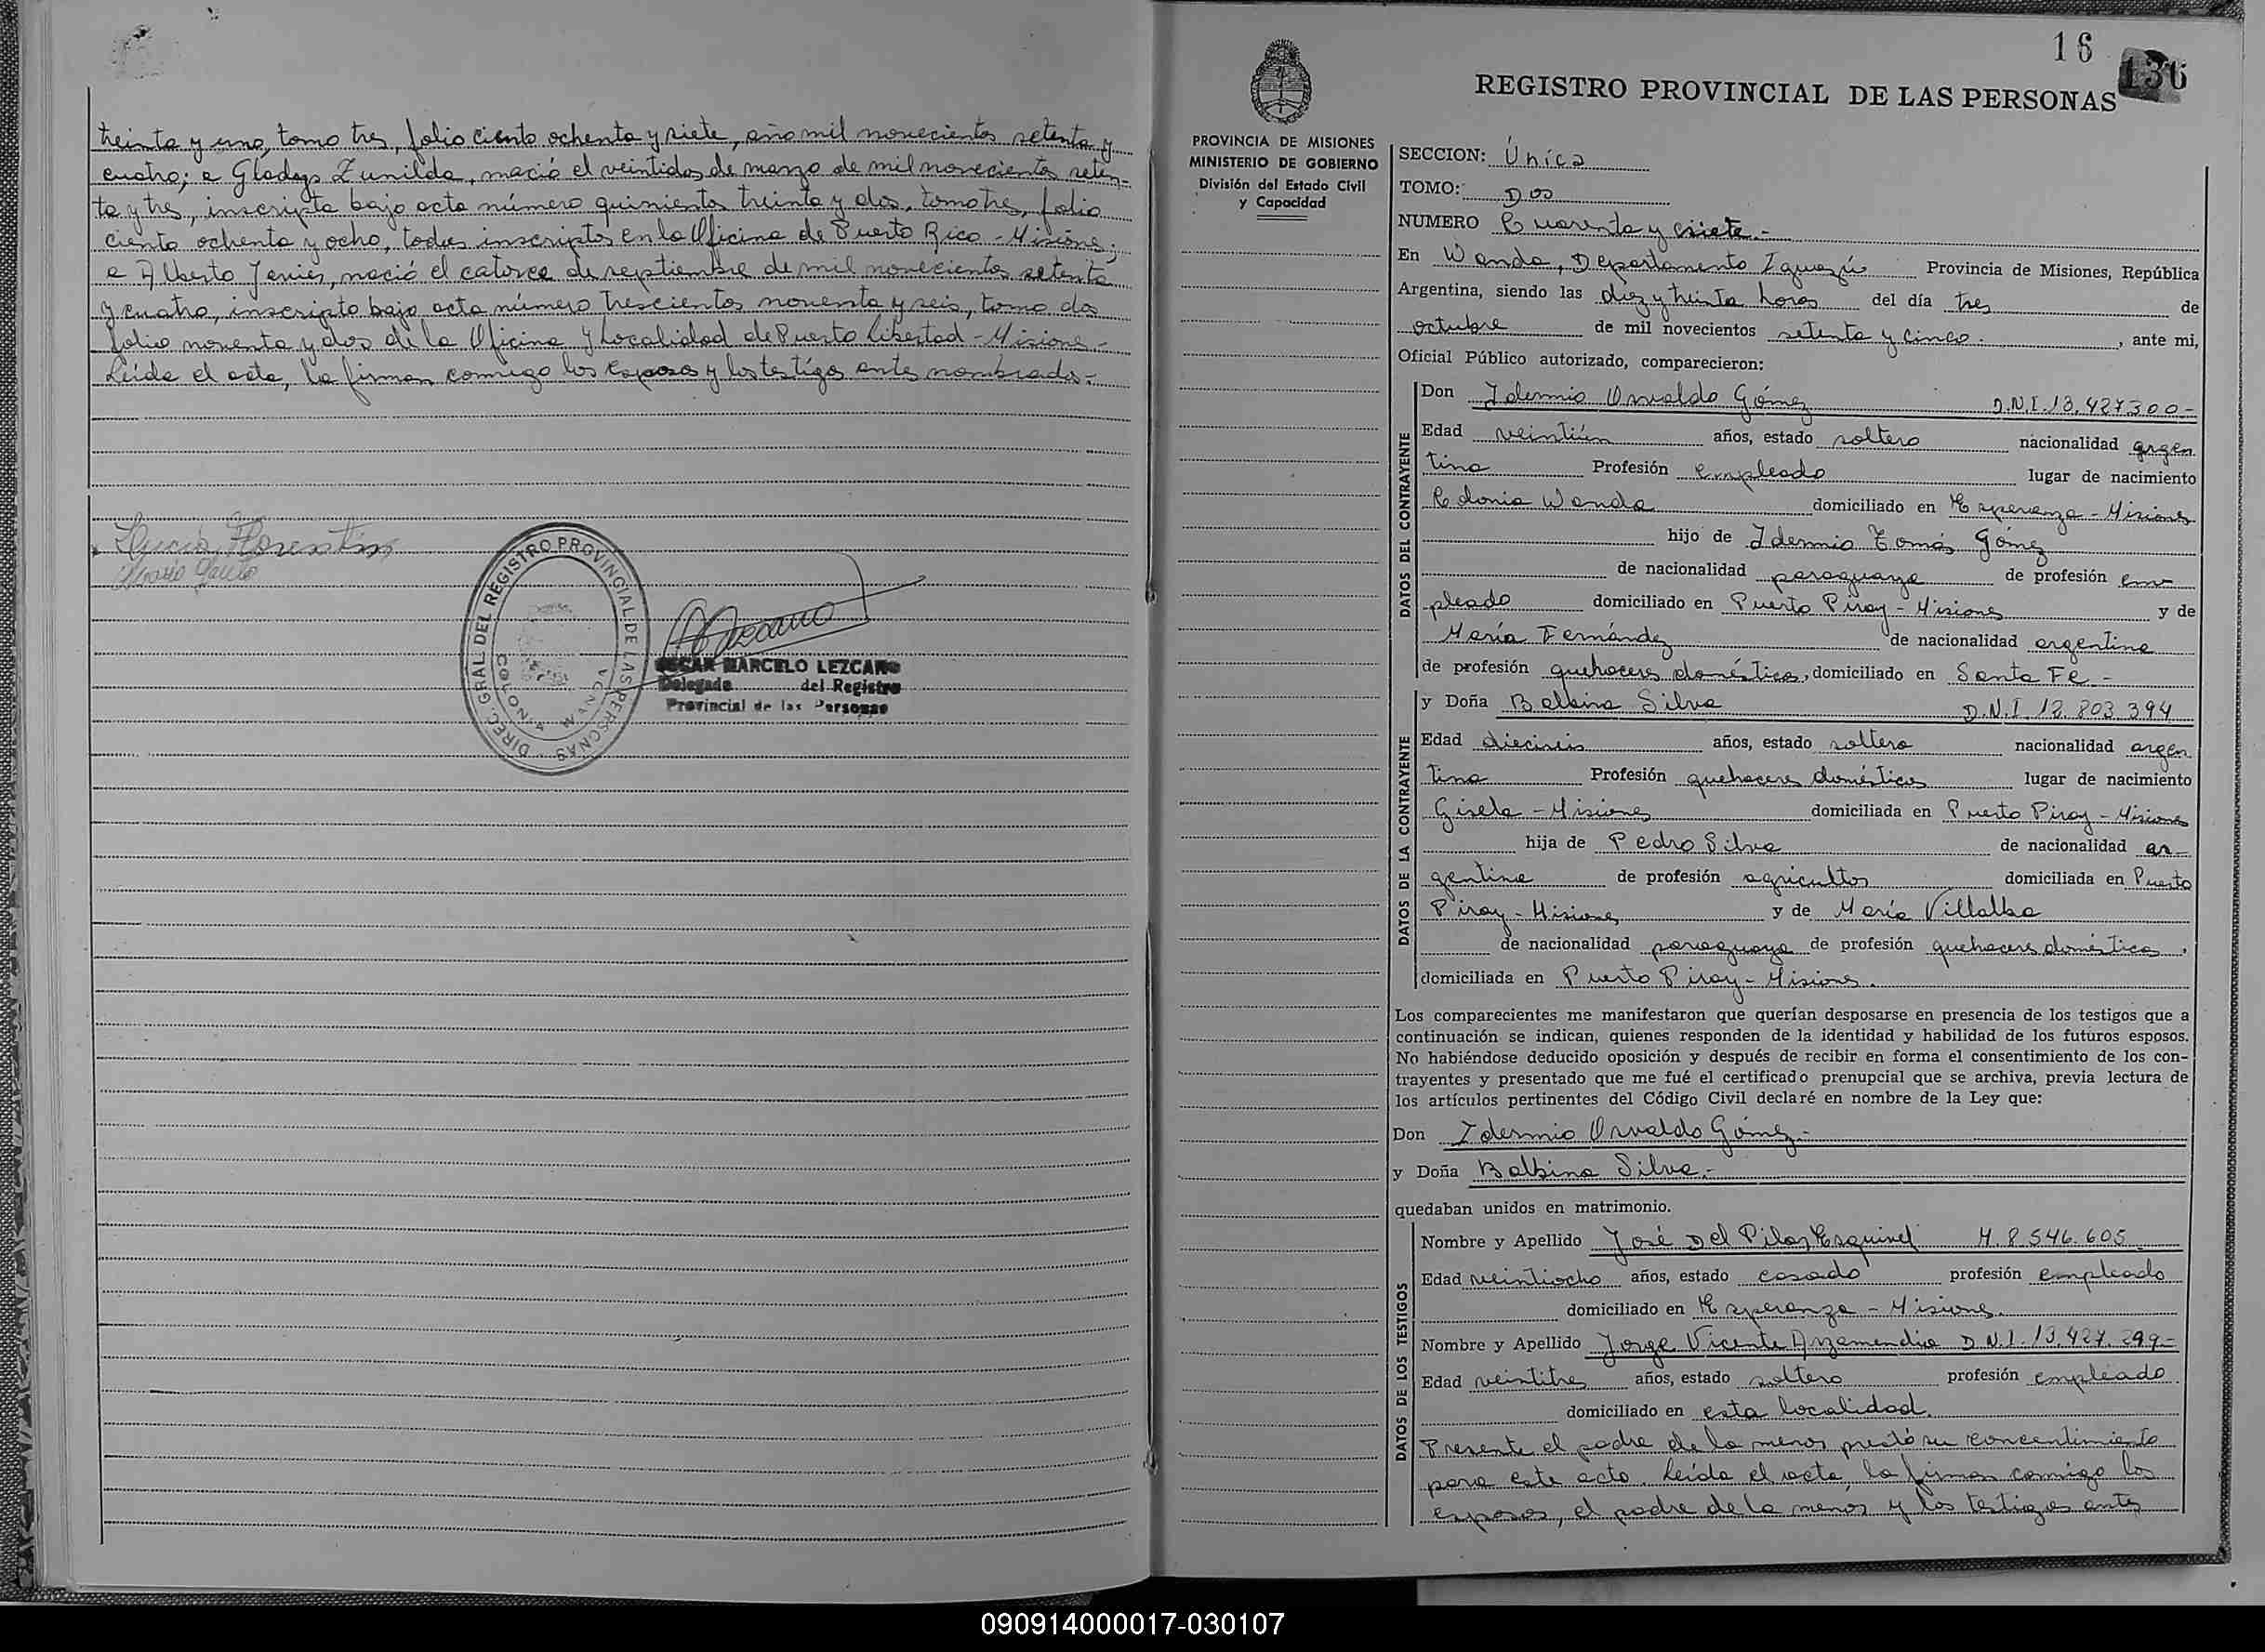 treinta y uno, tomo tres, folio ciento ochenta y siete, año mil novecientos setenta y
cuatro; a Gladys Zunilda, nació el veintidos de marzo de mil novecientos seten-
ta y tres, inscripta bajo acta número quinientos treinta y dos, tomo tres, folio
ciento ochenta y ocho, todos inscriptos en la Oficina de Puerto Rico - Misiones;
a Alberto Javier, nació el catorce de septiembre de mil novecientos setenta
y cuatro, inscripto bajo acta número trescientos noventa y seis, tomo dos
folio noventa y dos de la Oficina y Localidad de Puerto Libertad - Misiones -
Leída el acta, la firman conmigo los esposos y los testigos antes nombrados.-
Florentin
DIREC. GRAL DEL REGISTRO PROVINCIAL DE LAS PERSONAS
COLONIA WANDA
OSCAR MARCELO LEZCANO
Delegado del Registro
Provincial de las Personas
16
136
REGISTRO PROVINCIAL DE LAS PERSONAS
PROVINCIA DE MISIONES
MINISTERIO DE GOBIERNO
División del Estado Civil
y Capacidad
SECCION: Única
TOMO: Dos
NUMERO Cuarenta y siete.-
En Wanda, Departamento Iguazú Provincia de Misiones, República
Argentina, siendo las diez y treinta horas del día tres de
octubre de mil novecientos setenta y cinco. , ante mi,
Oficial Público autorizado, comparecieron:
DATOS DEL CONTRAYENTE
Don Idermio Osvaldo Gómez D.N.I. 13.427.300-
Edad veintiún años, estado soltero nacionalidad argen
tina Profesión empleado lugar de nacimiento
Colonia Wanda domiciliado en Esperanza - Misiones
hijo de Idermio Tomás Gómez
de nacionalidad paraguaya de profesión em-
pleado domiciliado en Puerto Piray - Misiones y de
María Fernández de nacionalidad argentina
de profesión quehaceres domésticos, domiciliado en Santa Fe -
DATOS DE LA CONTRAYENTE
y Doña Balbina Silva D.N.I. 12.803.394
Edad dieciseis años, estado soltera nacionalidad argen
tina Profesión quehaceres domésticos lugar de nacimiento
Gisela - Misiones domiciliada en Puerto Piray - Misiones
hija de Pedro Silva de nacionalidad ar-
gentina de profesión agricultor domiciliada en Puerto
Piray - Misiones y de María Villalba
de nacionalidad paraguaya de profesión quehaceres domésticos,
domiciliada en Puerto Piray - Misiones.
Los comparecientes me manifestaron que querían desposarse en presencia de los testigos que a
continuación se indican, quienes responden de la identidad y habilidad de los futuros esposos.
No habiéndose deducido oposición y después de recibir en forma el consentimiento de los con-
trayentes y presentado que me fué el certificado prenupcial que se archiva, previa lectura de
los artículos pertinentes del Código Civil declaré en nombre de la Ley que:
Don Idermio Osvaldo Gómez.-
y Doña Balbina Silva.-
quedaban unidos en matrimonio.
DATOS DE LOS TESTIGOS
Nombre y Apellido José Del Pilar Esquivel M. 8.546.605
Edad veintiocho años, estado casado profesión empleado
domiciliado en Esperanza - Misiones.
Nombre y Apellido Jorge Vicente Arzamendia D.N.I. 13.427.299-
Edad veintitres años, estado soltero profesión empleado
domiciliado en esta localidad.
Presente el padre de la menor prestó su concentimiento
para este acto. Leída el acta, la firman conmigo los
esposos, el padre de la menor y los testigos antes
090914000017-030107